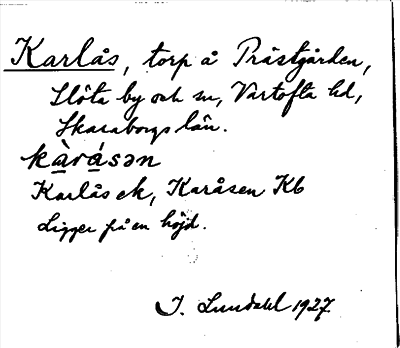 Karlås, torp å Prästgården,
Slöta by och sn, Vartofta hd,
Skaraborgs län.
kàråsən
Karlås ek, Karåsen Kb
Ligger på en höjd.
J. Lundahl 1927